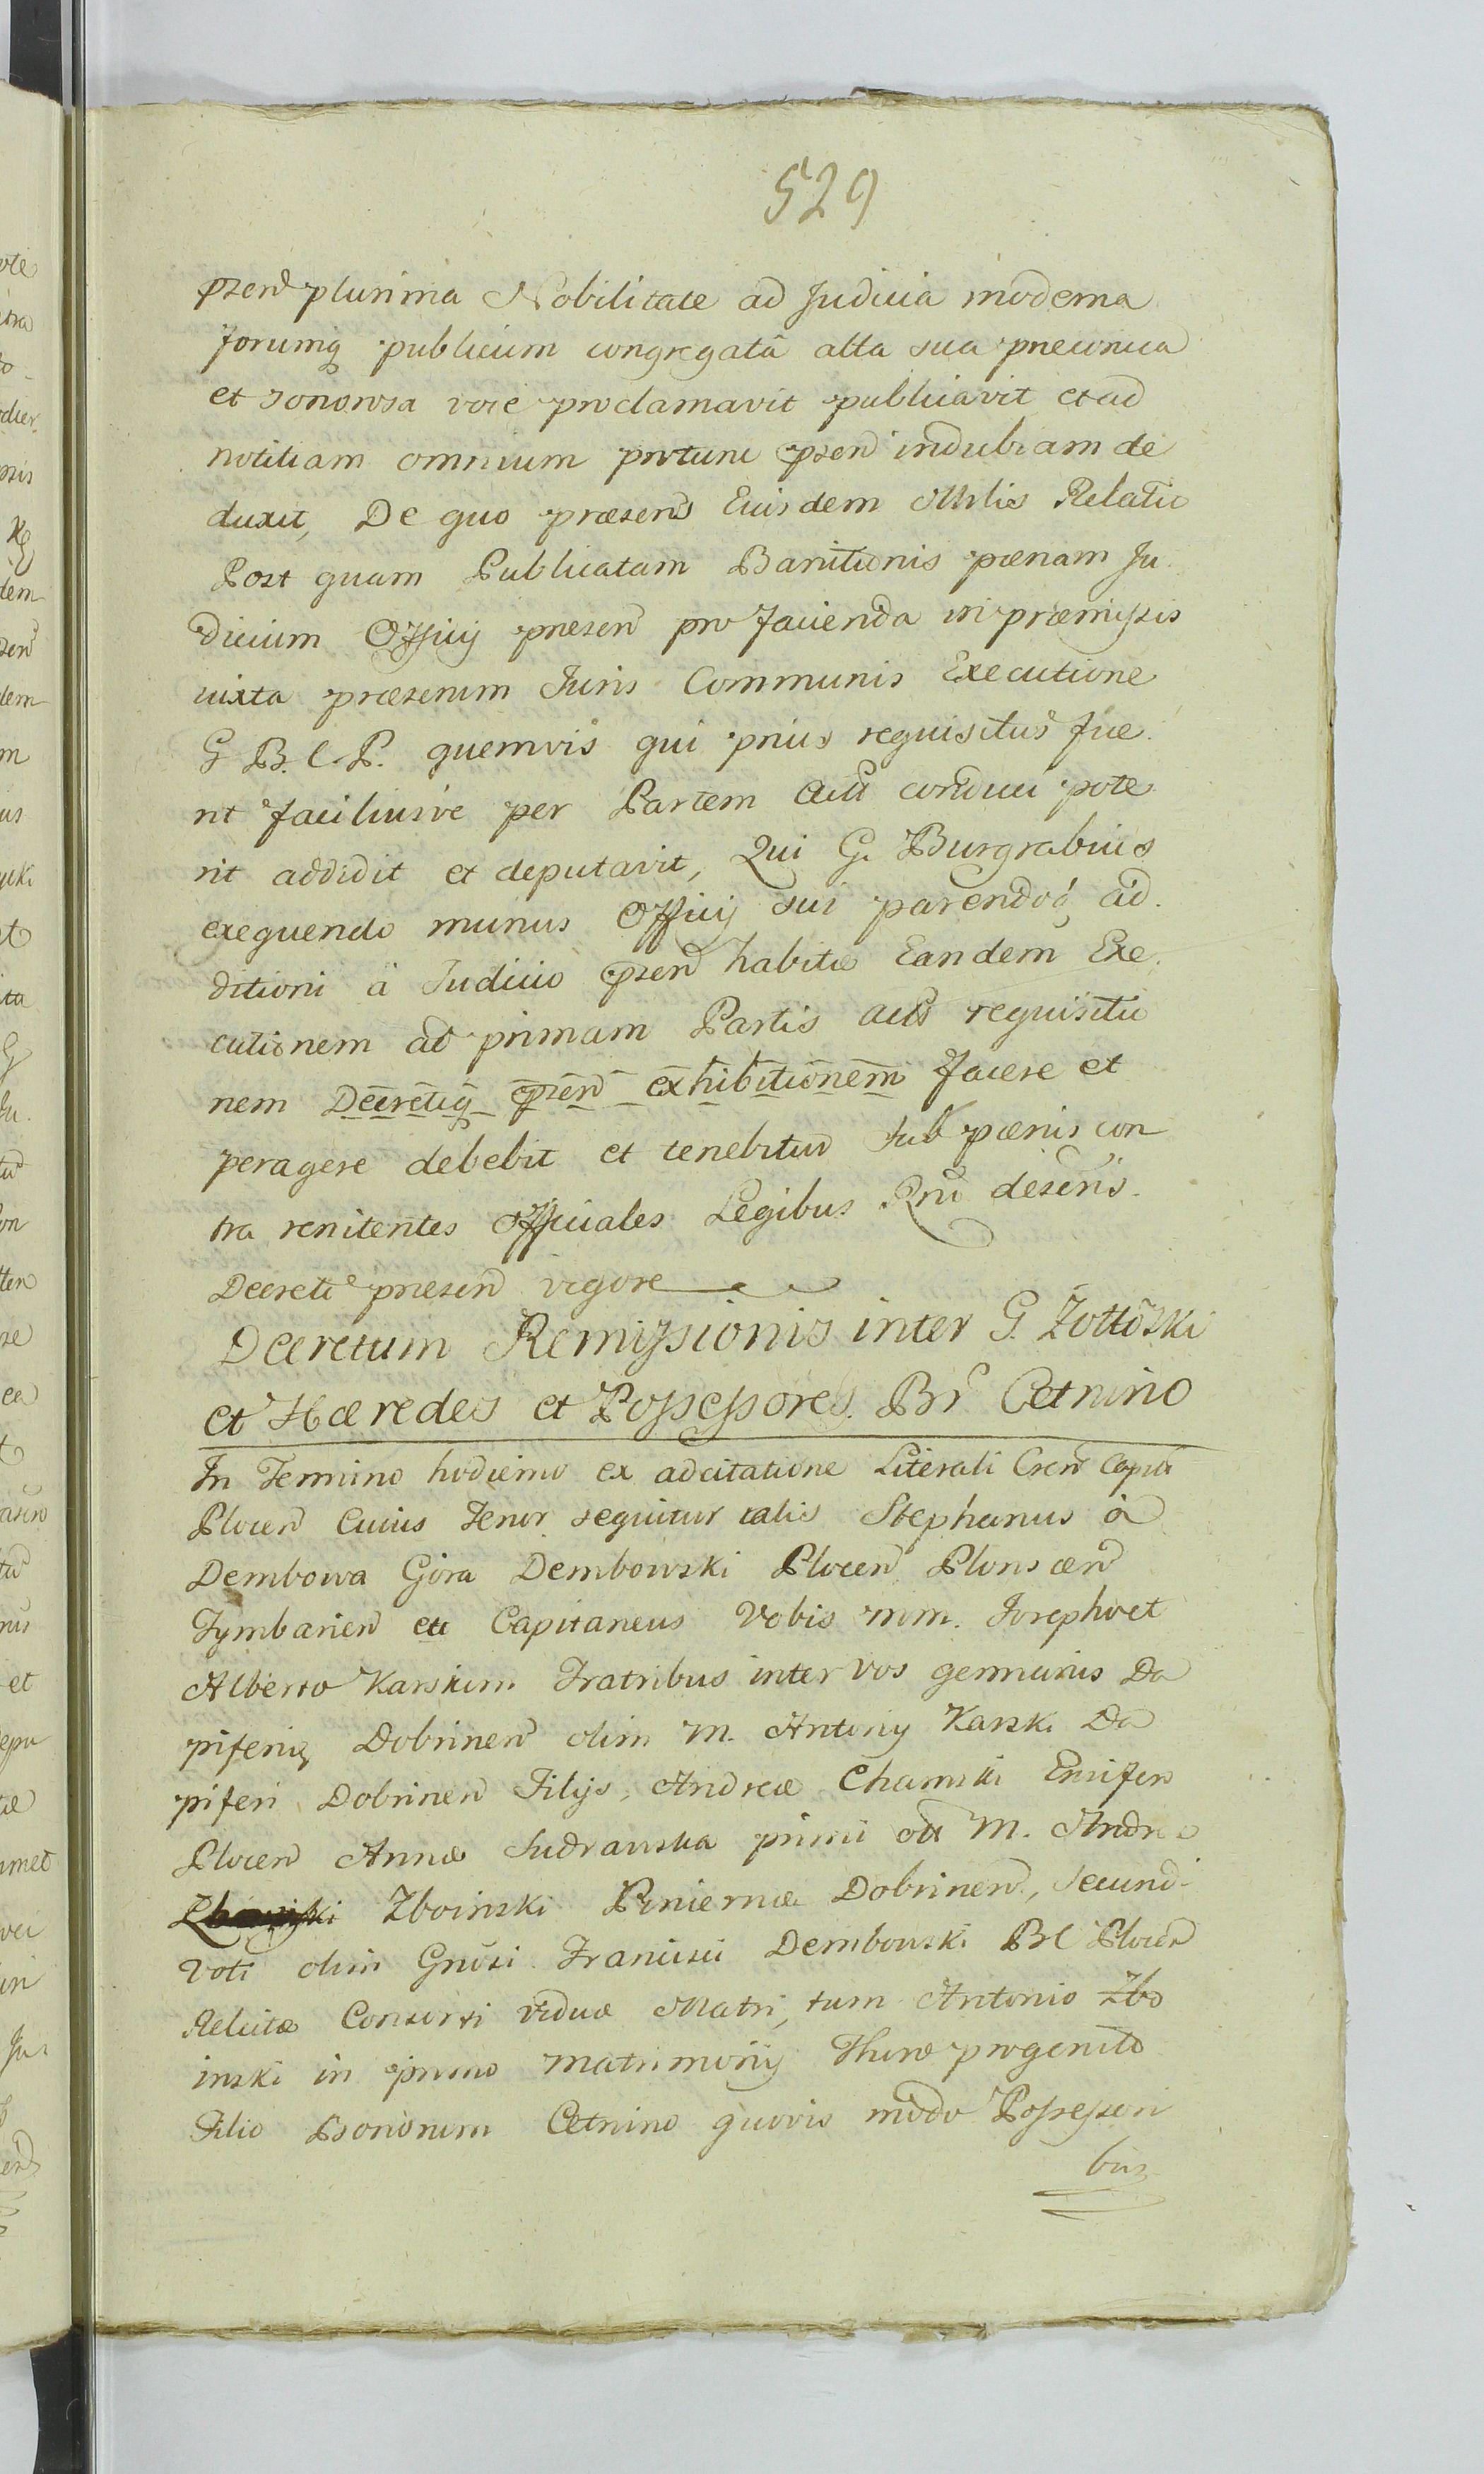 529
pzend plurima Nobilitate ad Judicia moderna
forumq publicum congregatâ alta sua preconica
et sonorosa voce proclamavit publicavit et ad
notitiam omnium protunc pzend indubiam de
duxit, De quo præsens Eiusdem Mnlis Relatio
Post quam Publicatam Banitionis pœnam Ju.
dicium Officij presend pro facienda in præmissis
iuxta præsenim Juris Communis Executione
G B. C. P. quemvis qui prius requisitus fue.
rit faciliusve per Partem Act conduci pote
rit addidit et deputavit, Qui G. Burgrabius
exequendo munus Officij sui parendoq ad.
ditioni â Judicio pzend habitæ Eandem Exe.
cutionem ad primam Partis Act requisitio
nem Decretiq pzend exhibitionem facere et
peragere debebit et tenebitur sub pœnis con
tra renitentes Officiales Legibus Rni desens.
Decreti presend vigore
Decretum Remissionis inter G. Zottoski
et Hæredes et Possessores Br Cetnino
In Termino hodierno ex adcitatione Literali Cren Capit
Plocen Cuius Tenor sequitur talis Stephanus â
Dembowa Góra Dembowski Plocen Plonscen
Tymbarien etc Capitaneus Vobis mm. Josepho et
Alberto Karskim Fratribus inter vos germanis Da
piferiq Dobrinen olim M. Antonij Karski Da
piferi Dobrinen Filijs, Andreæ Chamski Ensifero
Plocen Annæ Sudrawska primi ott M. Andreæ
Zboinski Pincernæ Dobrinen, Secundi
Voti olim Gnosi Francisci Dembowski BC Plocen
Relictæ Consorti viduæ Matri, tum Antonio Zbo
inski in primo Matrimonij Thoro progenito
Filio Bonorum Cetnino quovis modo Possessori
bus